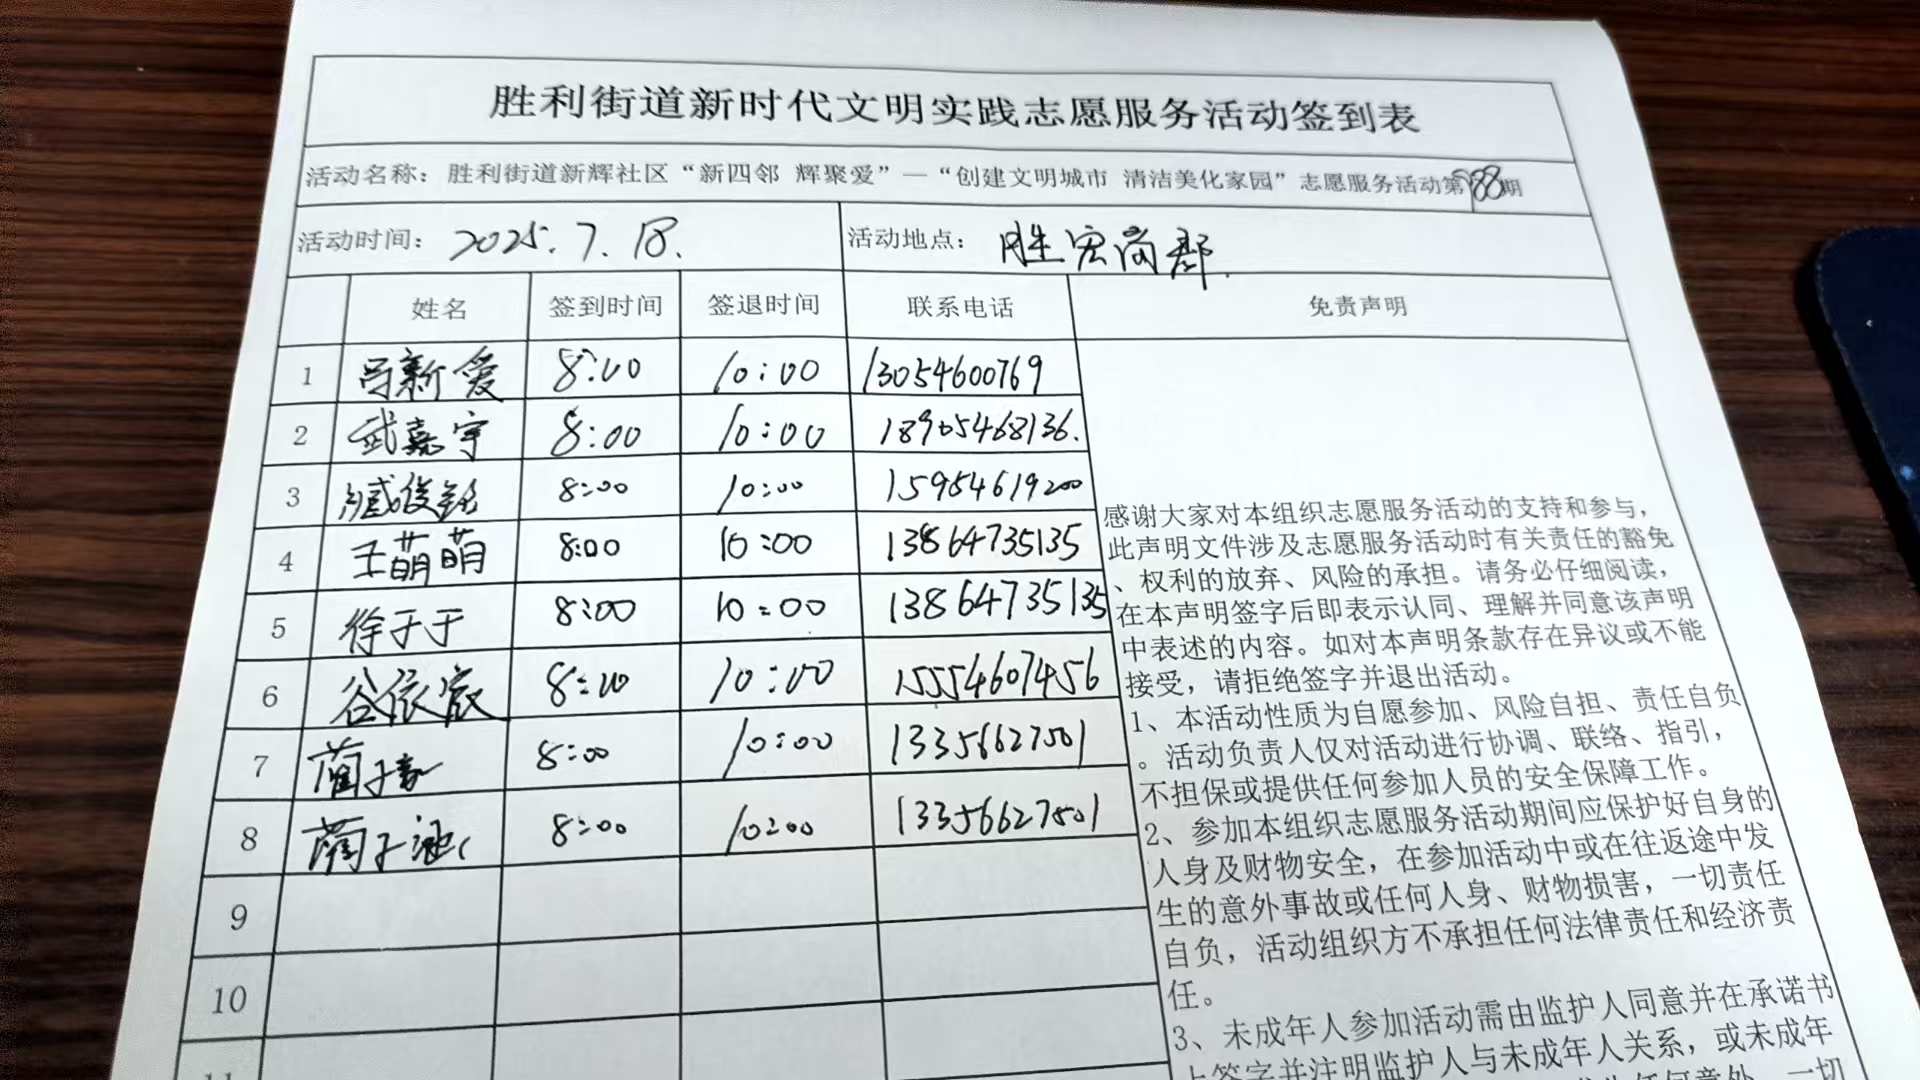 胜利街道新时代文明实践志愿服务活动签到表
活动名称：胜利街道新辉社区“新四邻 辉聚爱”—“创建文明城市 清洁美化家园”志愿服务活动第988期
活动时间：2025.7.18. 活动地点：胜宏尚郡.
姓名 签到时间 签退时间 联系电话 免责声明
1 吕新爱 8:00 10:00 13054600769
2 武嘉宇 8:00 10:00 18905468136.
3 臧俊铭 8:00 10:00 15954619200
4 王萌萌 8:00 10:00 13864735135
5 徐于于 8:00 10:00 13864735135
6 谷依宸 8:00 10:00 15554607456
7 蔺子嘉 8:00 10:00 13356627501
8 蔺子 8:00 10:00 13356627501
9
10
11
感谢大家对本组织志愿服务活动的支持和参与，
此声明文件涉及志愿服务活动时有关责任的豁免
、权利的放弃、风险的承担。请务必仔细阅读，
在本声明签字后即表示认同、理解并同意该声明
中表述的内容。如对本声明条款存在异议或不能
接受，请拒绝签字并退出活动。
1、本活动性质为自愿参加、风险自担、责任自负
。活动负责人仅对活动进行协调、联络、指引，
不担保或提供任何参加人员的安全保障工作。
2、参加本组织志愿服务活动期间应保护好自身的
人身及财物安全，在参加活动中或在往返途中发
生的意外事故或任何人身、财物损害，一切责任
自负，活动组织方不承担任何法律责任和经济责
任。
3、未成年人参加活动需由监护人同意并在承诺书
上签字并注明监护人与未成年人关系，或未成年
任何意外，一切